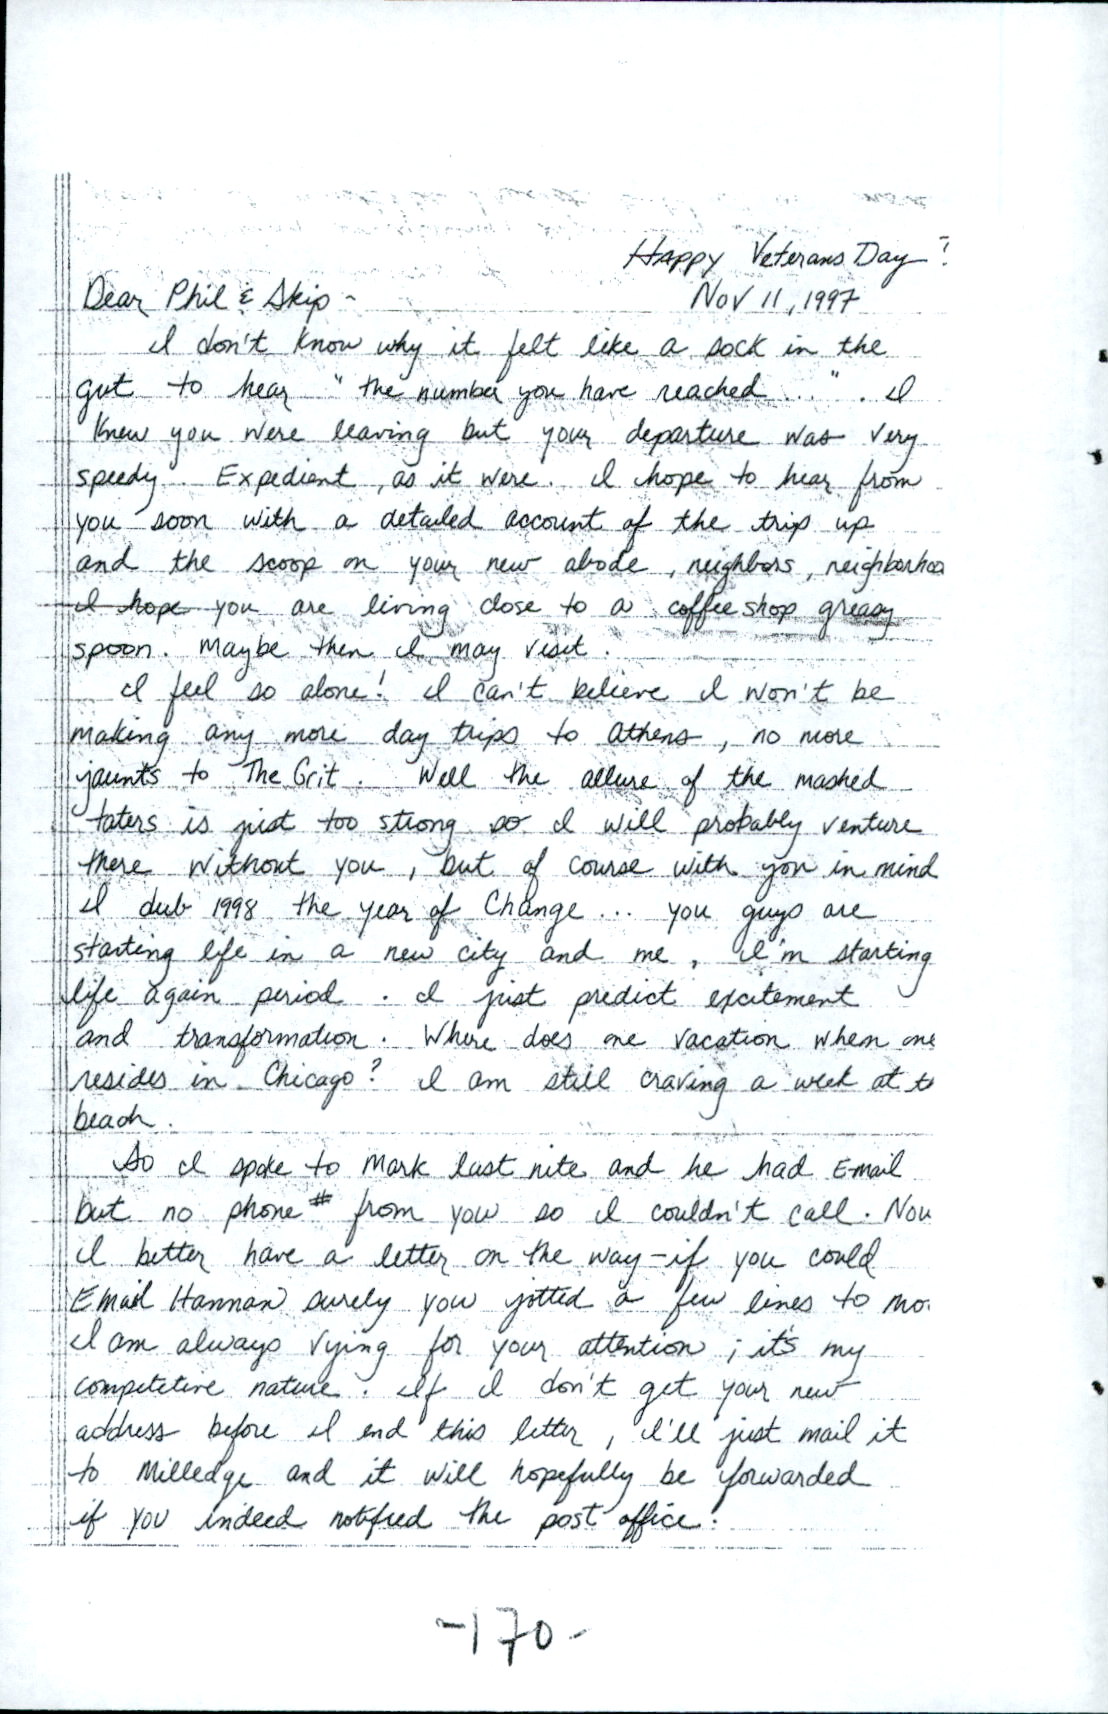 Happy Veterans Day!
Dear Phil & Skip -
Nov 11, 1997
I don't know why it felt like a sock in the
gut to hear "the number you have reached ...". I
knew you were leaving but your departure was very
speedy. Expedient, as it were. I hope to hear from
you soon with a detailed account of the trip up
and the scoop on your new abode, neighbors, neighborhoo
I hope you are living close to a coffee shop greasy
spoon. Maybe then I may visit.
I feel so alone! I can't believe I won't be
making any more day trips to Athens, no more
jaunts to The Grit. Well the allure of the mashed
taters is just too strong so I will probably venture
there without you, but of course with you in mind
I dub 1998 the year of Change ... you guys are
starting life in a new city and me, I'm starting
life again period. I just predict excitement
and transformation. Where does one vacation when one
resides in Chicago? I am still craving a week at t
beach.
So I spoke to Mark last nite and he had Email
but no phone # from you so I couldn't call. Now
I better have a letter on the way - if you could
Email Hannan surely you jotted a few lines to mo
I am always vying for your attention; it's my
competetive nature. If I don't get your new
address before I end this letter, I'll just mail it
to Milledge and it will hopefully be forwarded
if you indeed notified the post office.
-170-